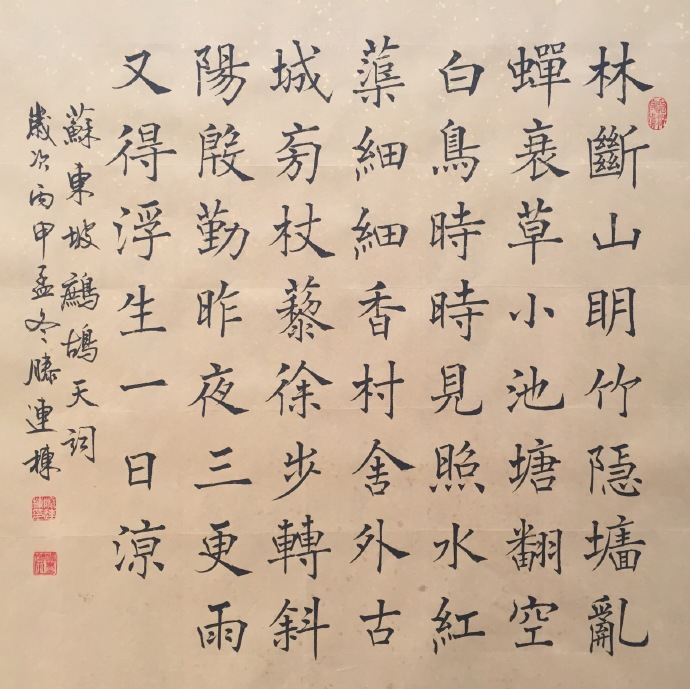 林斷山眀竹隱墻亂
蟬衰草小池塘翻空
白鳥時時見照水紅
蕖細細香村舍外古
城旁杖藜徐步轉斜
陽殷勤昨夜三更雨
又得浮生一日涼
蘇東坡鷓鴣天詞
歲次丙申孟冬滕連棟